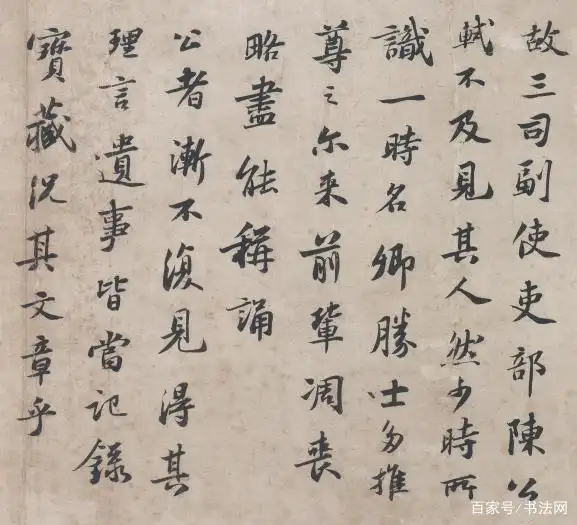 故三司副使吏部陳公
軾不及見其人然少時所
識一時名卿勝士多推
尊之尔来前輩凋喪
略盡能稱誦
公者漸不復見得其
理言遺事皆當記錄
寶藏況其文章乎
百家号/书法网